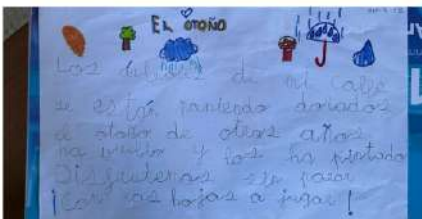 EL OTOÑO
Los de mi calle
se están poniendo dorados
el otoño de otros años
ha vuelto y los ha pintado
Disfrutemos sin parar
¡Con las hojas a jugar!